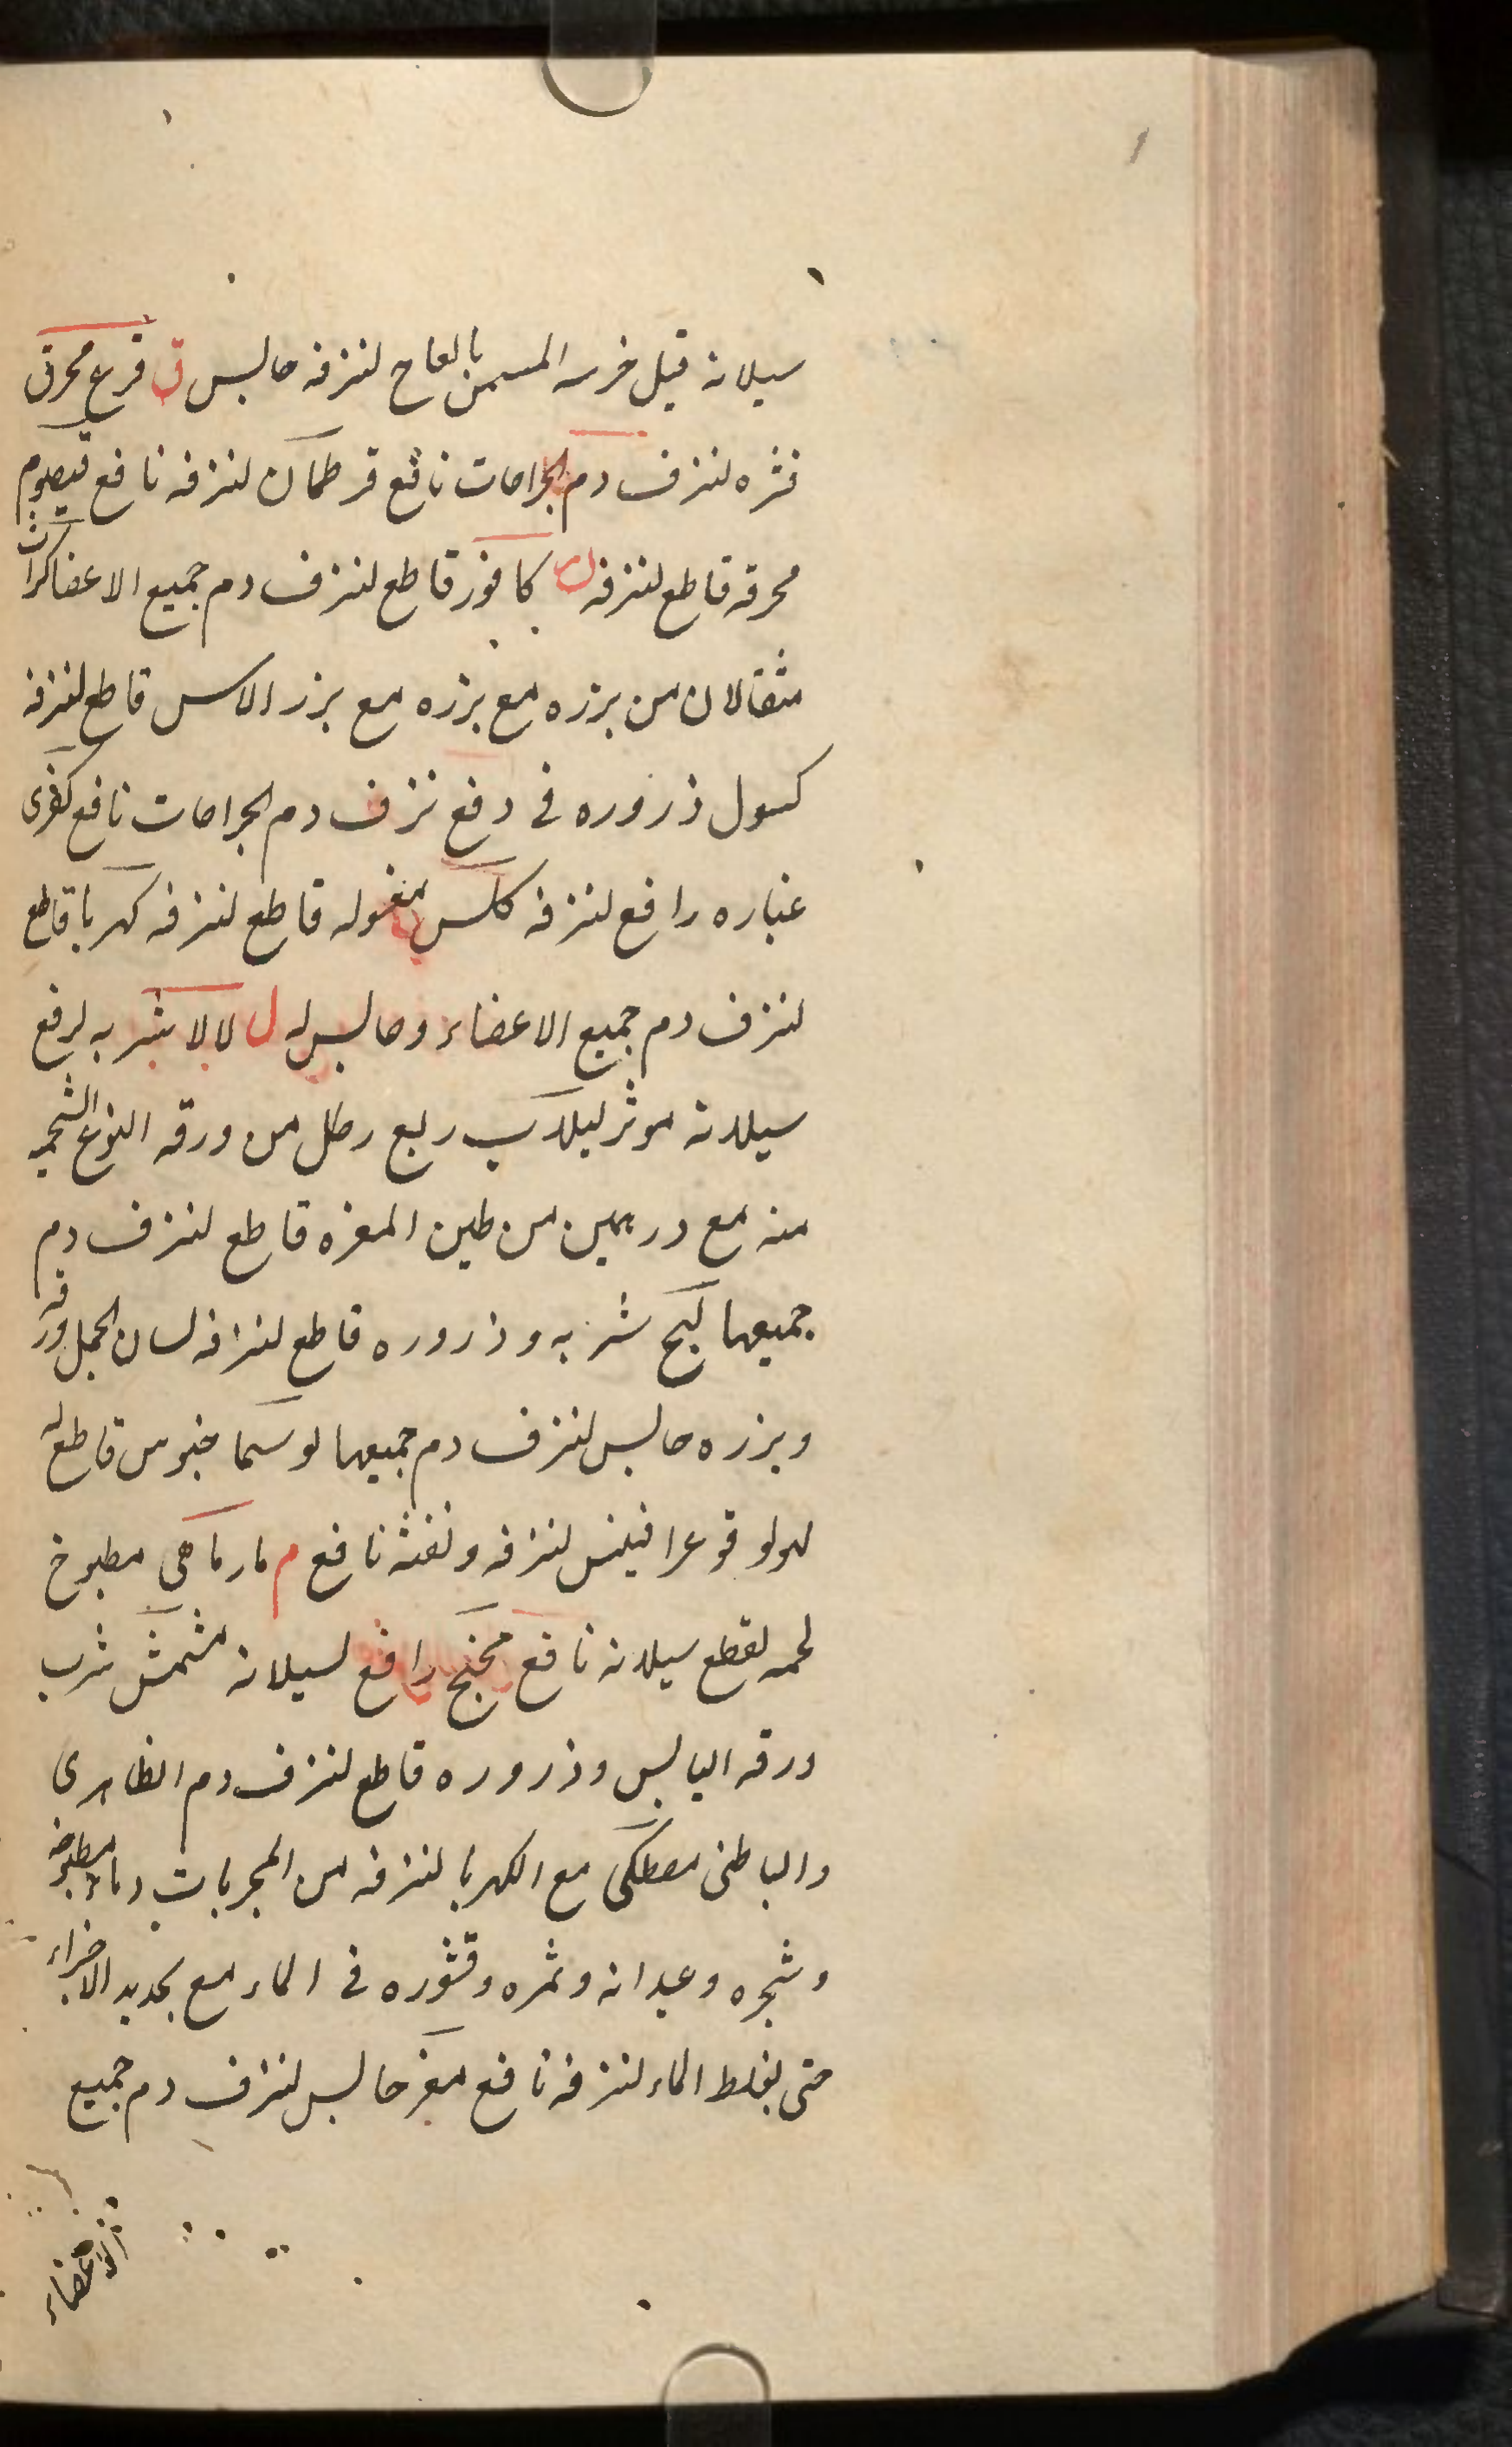 سیلانه فیل خرسه المسمن بالعاج لنزفه حابس ق قرع محرق
قشره لنزف دم الجراحات نافع قرطمان لنزفه نافع قیصوم
محرقه قاطع لنزفه ک کافور قاطع لنزف دم جمیع الاعضا کراث
مثقالان من بزره مع بزره مع بزر الاس قاطع لنزفه
کسول ذروره فی دفع نزف دم الجراحات نافع کفری
غباره رافع لنزفه کلس مغسوله قاطع لنزفه کهربا قاطع
لنزف دم جمیع الاعضاء وحابس له ل لالا شربه لرفع
سیلانه موثر لبلاب ربع رطل من ورقه النوع الشجر
منه مع درهمین من طین المغره قاطع لنزف دم
جمیعها لبخ شربه وذروره قاطع لنزفه لسان الحمل ورقه
وبزره حابس لنزف دم جمیعها لوسیماخیوس قاطع له
لولوقوغرافیلس لنزفه ونفثه نافع م مارماهی مطبوخ
لحمه لقطع سیلانه نافع مخنج رافع لسیلانه مشمش شرب
ورقه الیابس وذروره قاطع لنزف دم الظاهری
والباطنی مصطکی مع الکهربا لنزفه من المجربات وماء مطبوخه
وشجره وعیدانه وثمره وقشوره فی الماء مع تجدید الاجزاء
حتی یغلظ الماء لنزفه نافع مغر حابس لنزف دم جمیع
الاعضاء